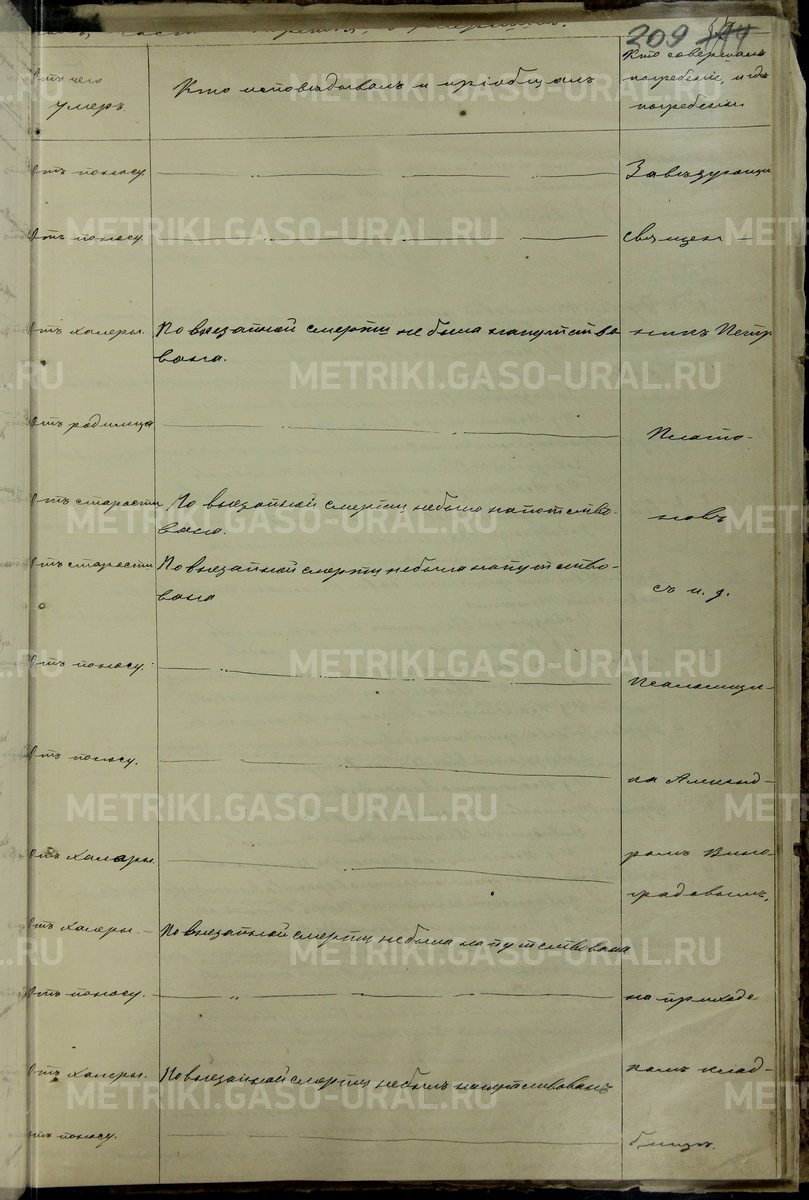 209
Отъ чего
умеръ.
Кто исповѣдывалъ и пріобщалъ
Кто совершалъ
погребеніе, и гдѣ
погребены
Отъ поносу.
Завѣдующій
Отъ поносу.
священ-
Отъ холеры.
По внезапной смерти не была напутство
вана.
никъ Петр
Отъ родимца
Плато-
Отъ старости
По внезапной смерти небыла напутство-
вана.
новъ
Отъ старости
По внезапной смерти небыла напутство-
вана
съ и. д.
Отъ поносу.
Псаломщи-
Отъ поносу.
ка Александ-
Отъ холеры.
ромъ Вино-
градовымъ,
Отъ холеры. -
По внезапной смерти небыла напутствована
Отъ поносу.
на приходс
Отъ холеры.
По внезапной смерти небылъ напутствованъ
комъ клад-
Отъ поносу.
бищѣ.
METRIKI.GASO-URAL.RU